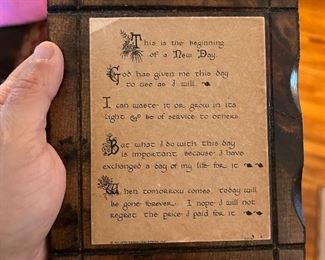 This is the beginning
of a New Day.
God has given me this day
to use as I will.
I can waste it or grow in its
light & be of service to others.
But what I do with this day
is important because I have
exchanged a day of my life for it.
When tomorrow comes, today will
be gone forever. I hope I will not
regret the price I paid for it.